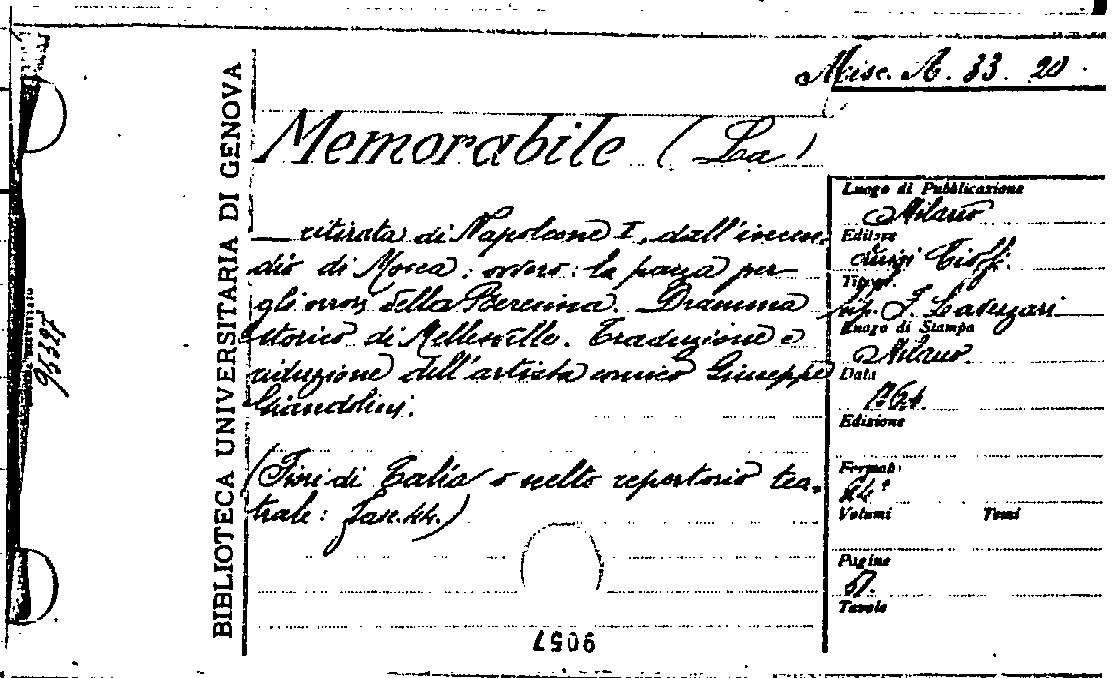 Misc. A. 33. 20.
BIBLIOTECA UNIVERSITARIA DI GENOVA
Memorabile (La)
— ritirata di Napoleone I, dall'incen-
dio di Mosca: ovvero: la pazza per
gli orrori della Beresina. Dramma
storico di Mellesville. Traduzione e
riduzione dell'artista comico Giuseppe
Giandolini.
(Fiori di Talia o scelto repertorio tea-
trale: fasc. 44.)
Luogo di Pubblicazione
Milano
Editore
Luigi Cioffi.
Tipogr.
tip. F.
Luogo di Stampa
Milano.
Data
Edizione
Formato
24°
Volumi Tomi
Pagine
Tavole
9057